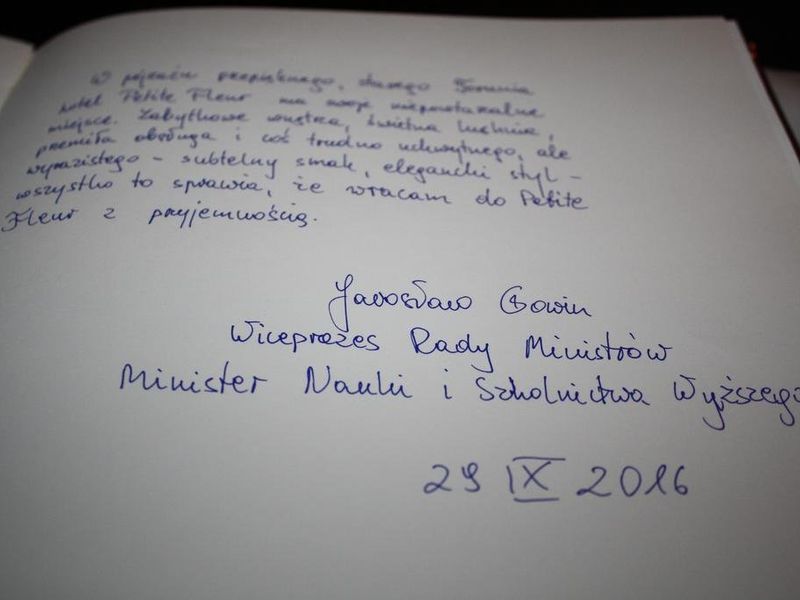 W pejzażu przepięknego, starego Torunia
hotel Petite Fleur ma swoje niepowtarzalne
miejsce. Zabytkowe wnętrza, świetna kuchnia,
przemiła obsługa i coś trudno uchwytnego, ale
wyrazistego – subtelny smak, elegancki styl –
wszystko to sprawia, że wracam do Petite
Fleur z przyjemnością.
Jarosław Gowin
Wiceprezes Rady Ministrów
Minister Nauki i Szkolnictwa Wyższego
29 IX 2016